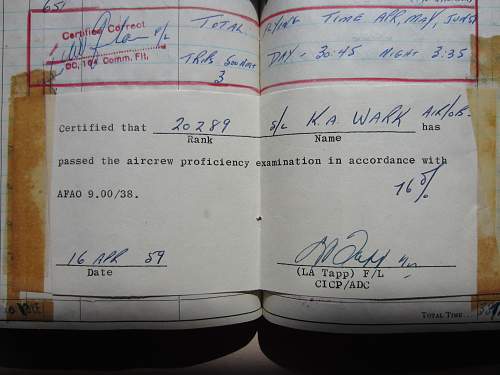 651
Certified Correct TOTAL FLYING TIME APR, MAY, JUNE
F/L
OC, 104 Comm. Flt. TRIPS 500 DAY - 30:45 NIGHT 3:35
3
Certified that 20289 S/L K.A. WARK AIR/OB. has
Rank Name
passed the aircrew proficiency examination in accordance with
AFAO 9.00/38. 76%
16 APR 59
Date (LA Tapp) F/L
CICP/ADC
TOTAL TIME....